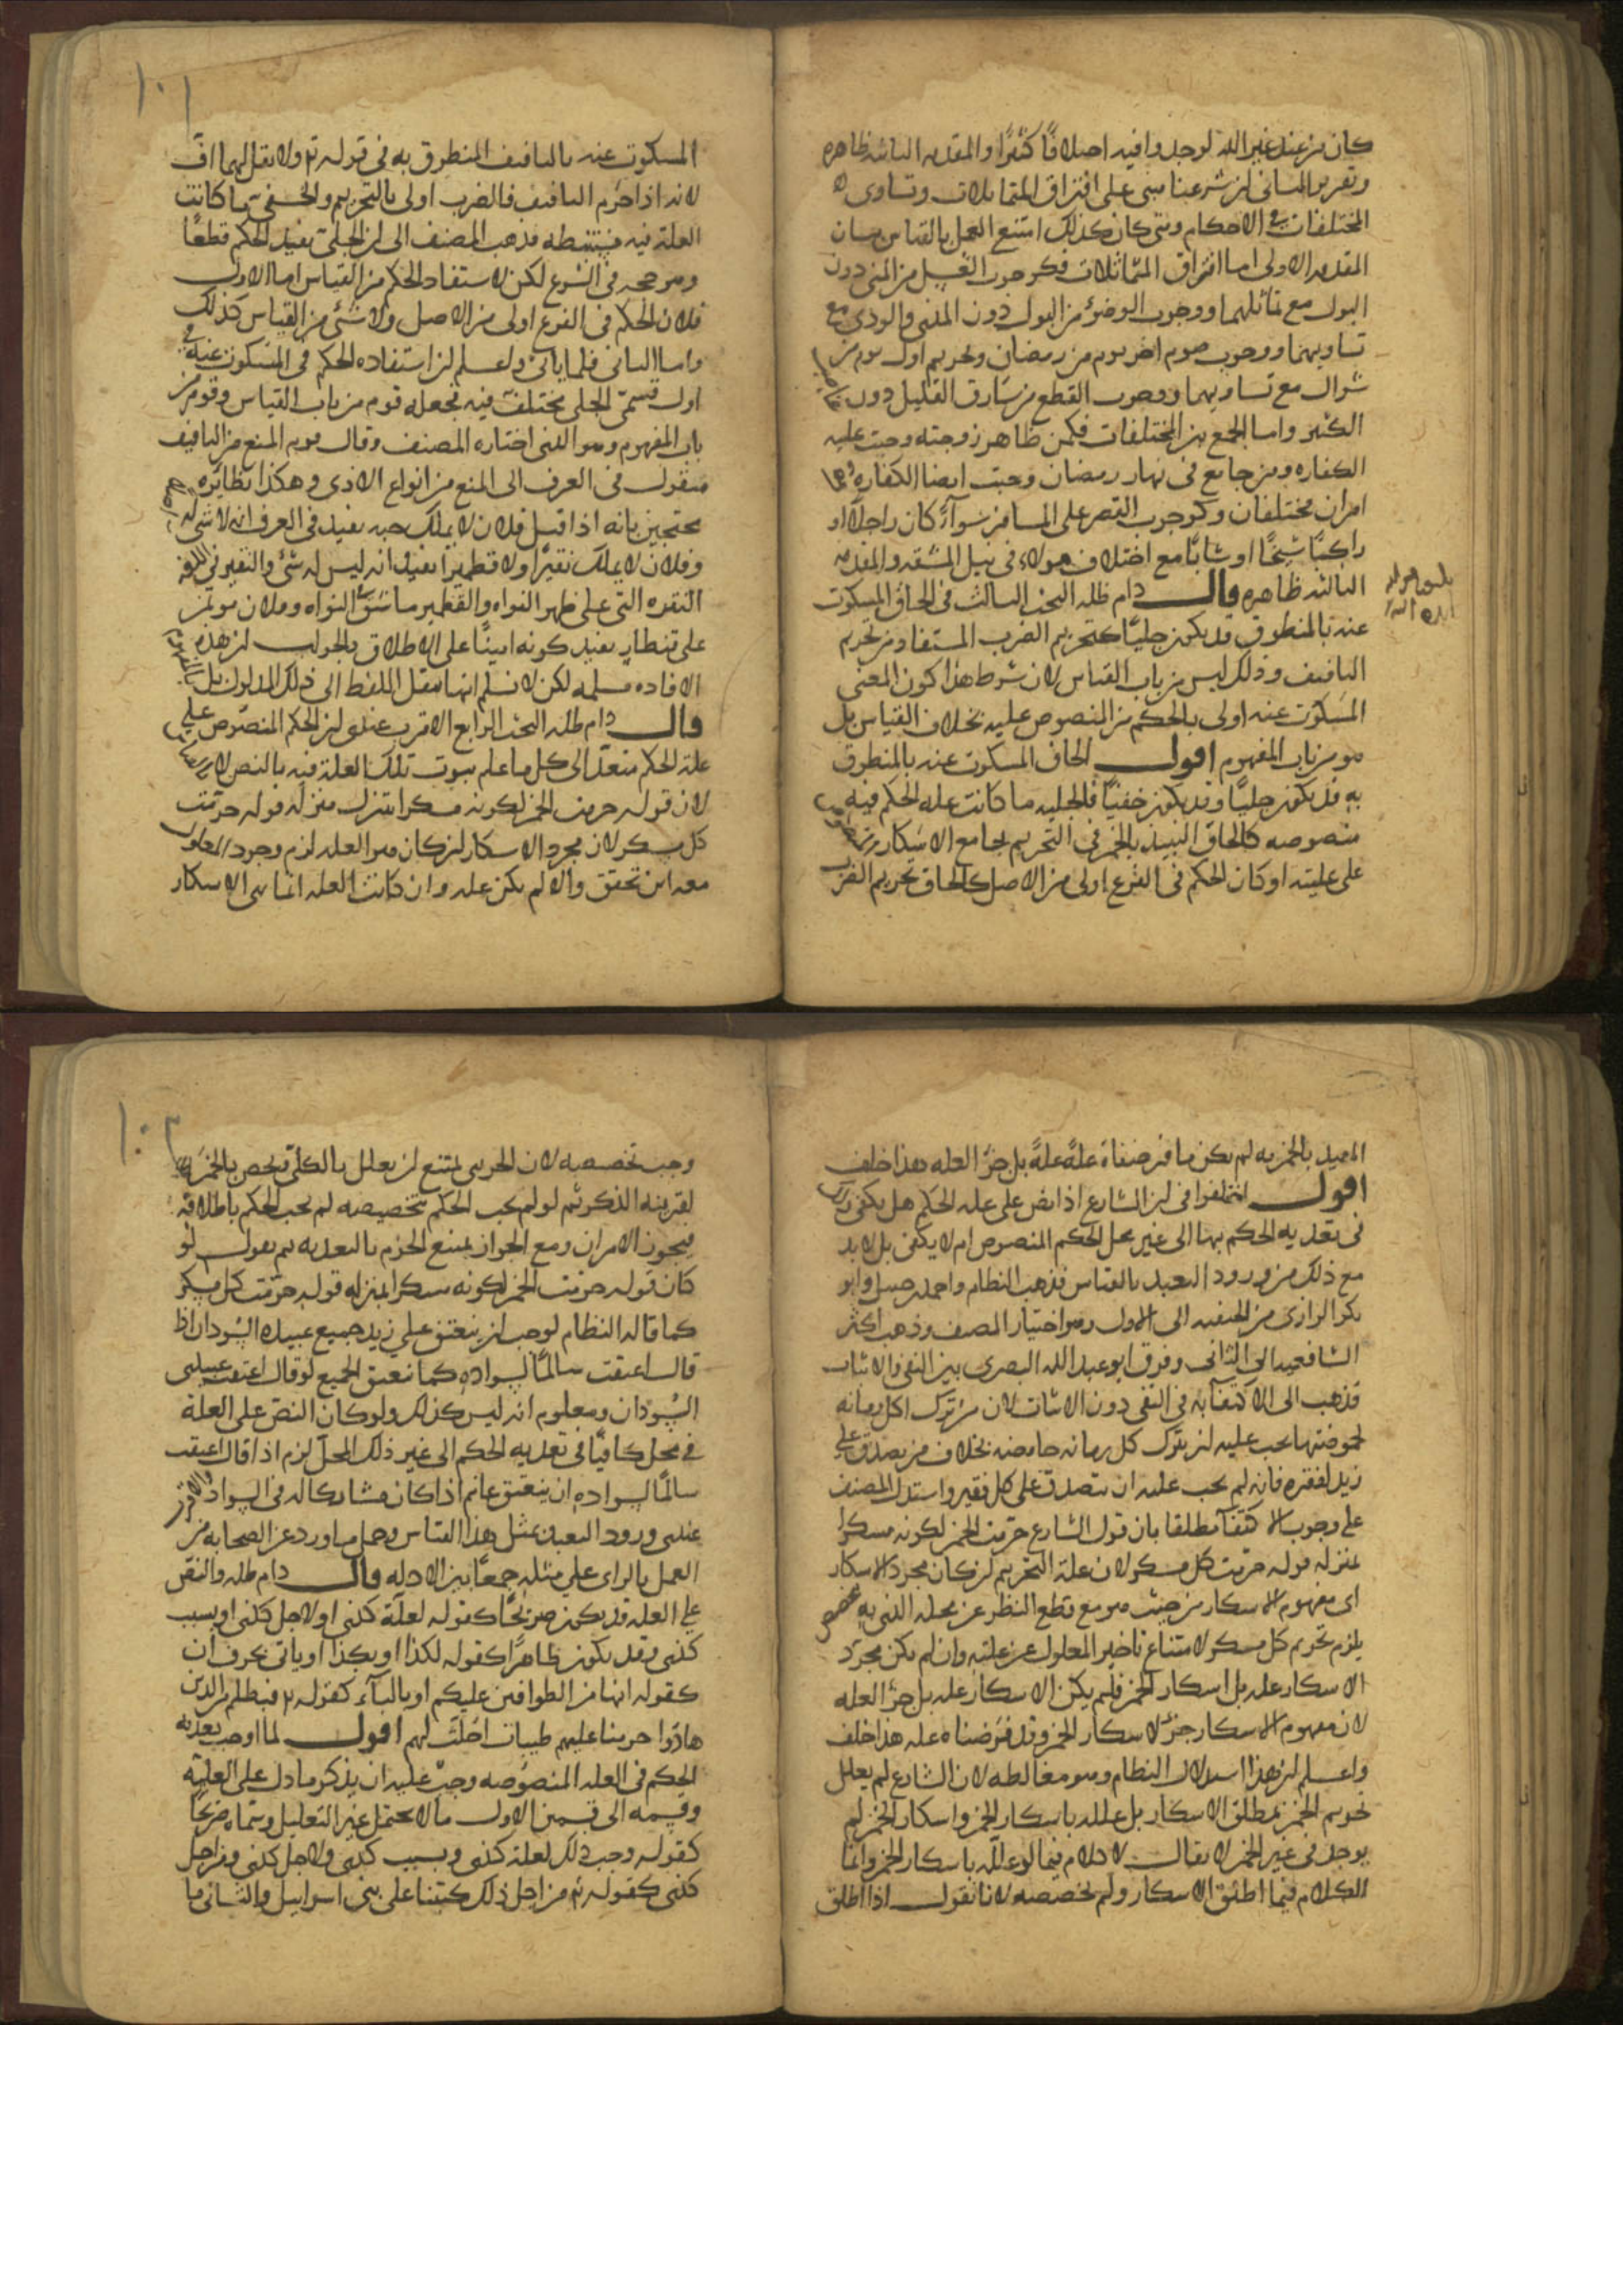 كان من عند غير الله لوجدوا فيه اختلافا كثيرا والمقدمه الثانيه ظاهره
وتقرير الثاني ان شرعنا مبني على افتراق المتماثلات وتساوى
المختلفات في الاحكام ومتى كان كذلك امتنع العمل بالقياس بيان
المقدمه الاولى اما افتراق المتماثلات فكوجوب الغسل من المنى دون
البول مع تماثلهما ووجوب الوضوء من البول دون المذي والودي مع
تساويهما ووجوب صوم اخر يوم من رمضان وتحريم اول يوم من
شوال مع تساويهما ووجوب القطع من سارق القليل دون
الكثير واما الجمع بين المختلفات فكمن ظاهر زوجته وجبت عليه
الكفاره ومن جامع في نهار رمضان وجبت ايضا الكفاره وهما
امران مختلفان وكوجوب القصر على المسافر سواء كان راجلا او
راكبا شيخا او شابا مع اختلاف هولاء في نيل المشقه والمقدمه
الثالثه ظاهره قال دام ظله البحث الثالث في الحاق المسكوت
عنه بالمنطوق قد يكون جليا كتحريم الضرب المستفاد من تحريم
التافيف وذلك ليس من باب القياس لان شرط هذا كون المعنى
المسكوت عنه اولى بالحكم من المنصوص عليه بخلاف القياس بل
هو من باب المفهوم اقول الحاق المسكوت عنه بالمنطوق
به قد يكون جليا وقد يكون خفيا فالجليه ما كانت عله الحكم فيه
منصوصه كالحاق النبيذ بالخمر في التحريم بجامع الاسكار
على عليته او كان الحكم في الفرع اولى من الاصل كالحاق تحريم الضرب
١٠١
المسكوت عنه بالتافيف المنطوق به في قوله تع ولا تقل لهما اف
لانه اذا حرم التافيف فالضرب اولى بالتحريم والخفي ما كانت
العله فيه مستنبطه فذهب المصنف الى ان الجلي يفيد الحكم قطعا
وهو حجه في الشرع لكن لا يستفاد الحكم من القياس اما الاول
فلان الحكم في الفرع اولى من الاصل ولا شئ من القياس كذلك
واما الثاني فلما ياتي واعلم ان استفاده الحكم في المسكوت عنه في
اول قسمى الجلى مختلف فيه فجعله قوم من باب القياس وقوم من
باب المفهوم وهو الذي اختاره المصنف وقال قوم المنع من التافيف
منقول في العرف الى المنع من انواع الاذى وهكذا نظائره
محتجين بانه اذا قيل فلان لا يملك حبه يفيد في العرف انه لا شئ له
وفلان لا يملك نقيرا ولا قطميرا يفيد انه ليس له شئ والنقير في اللغه
النقره التي على ظهر النواه والقطمير ما شق النواه وفلان موتمن
على قنطار يفيد كونه امينا على الاطلاق والجواب ان هذه
الافاده مسلمه لكن لا نسلم انها بنقل اللفظ الى ذلك المدلول بل
قال دام ظله البحث الرابع الاقرب عندي ان الحكم المنصوص على
علته الحكم متعد الى كل ما علم ثبوت تلك العله فيه بالنص لا
لان قوله حرمت الخمر لكونه مسكرا يتنزل منزله قوله حرمت
كل مسكر لان مجرد الاسكار ان كان هو العله لزم وجود المعلول
معه اين تحقق والا لم يكن عله وان كانت العله انما هي الاسكار
المقيد بالخمريه لم يكن ما فرضناه علة علة بل جزء العله هذا خلف
اقول اختلفوا في ان الشارع اذا نص على عله الحكم هل يكفي ذلك
في تعديه الحكم بها الى غير محل الحكم المنصوص ام لا يكفي بل لا بد
مع ذلك من ورود التعبد بالقياس فذهب النظام واحمد بن حنبل وابو
بكر الرازي من الحنفيه الى الاول وهو اختيار المصنف وذهب اكثر
الشافعيه الى الثاني وفرق ابو عبد الله البصرى بين النفي والاثبات
فذهب الى الاكتفاء به في النفى دون الاثبات لان من ترك اكل رمانه
لحموضتها يجب عليه ان يترك كل رمانه حامضه بخلاف من يصدق على
زيد لفقره فانه لم يجب عليه ان يتصدق على كل فقير واستدل المصنف
على وجوب الاكتفاء مطلقا بان قول الشارع حرمت الخمر لكونه مسكرا
بمنزله قوله حرمت كل مسكر لان علة التحريم ان كان مجرد الاسكار
اى مفهوم الاسكار من حيث هو مع قطع النظر عن محله الذي به
يلزم تحريم كل مسكر لامتناع تاخير المعلول عن علته وان لم يكن مجرد
الاسكار عله بل اسكار الخمر فلم يكن الاسكار عله بل جزء العله
لان مفهوم الاسكار جزء لاسكار الخمر وقد فرضناه عله هذا خلف
واعلم ان هذا استدلال النظام وهو مغالطه لان الشارع لم يعلل
تحريم الخمر بمطلق الاسكار بل علله باسكار الخمر واسكار الخمر لم
يوجد في غير الخمر لا يقال لا كلام فيما لو علله باسكار الخمر وانما
الكلام فيما اطلق الاسكار ولم يخصصه لانا نقول اذا اطلق
١٠٢
وجب تخصيصه لان الجزئى يمتنع ان يعلل بالكلى فيخص بالخمريه
لقرينه الذكر ثم لو لم يجب الحكم بتخصيصه لم يجب الحكم باطلاقه
فيجوز الامران ومع الجواز يمتنع الجزم بالتعديه ثم نقول لو
كان قوله حرمت الخمر لكونه مسكرا بمنزله قوله حرمت كل مسكر
كما قاله النظام لوجب ان ينعتق على زيد جميع عبيده السودان اذا
قال اعتقت سالما لسواده كما تعتق الجميع لو قال اعتقت عبيدى
السودان ومعلوم انه ليس كذلك ولو كان النص على العلة
في محل كافيا في تعديه الحكم الى غير ذلك المحل لزم اذا قال اعتقت
سالما لسواده ان ينعتق غانم اذا كان مشاركا له في السواد والاقرب
عندى ورود التعبد بمثل هذا القياس وحمل ما ورد عن الصحابه من
العمل بالراى على مثله جمعا بين الادله قال دام ظله والنص
على العله قد يكون صريحا كقوله لعلة كذى او لاجل كذى او بسبب
كذى وقد يكون ظاهرا كقوله لكذا او بكذا او ياتي بحرف ان
كقوله انها من الطوافين عليكم او بالباء كقوله تع فبظلم من الذين
هادوا حرمنا عليهم طيبات احلت لهم اقول لما اوجب تعديه
الحكم في العله المنصوصه وجب عليه ان يذكر ما دل على العليه
وقسمه الى قسمين الاول ما لا يحتمل غير التعليل وسماه صريحا
كقوله وجب ذلك لعلة كذى وبسبب كذى ولاجل كذى ومن اجل
كذى كقوله تع من اجل ذلك كتبنا على بني اسرايل والثاني ما